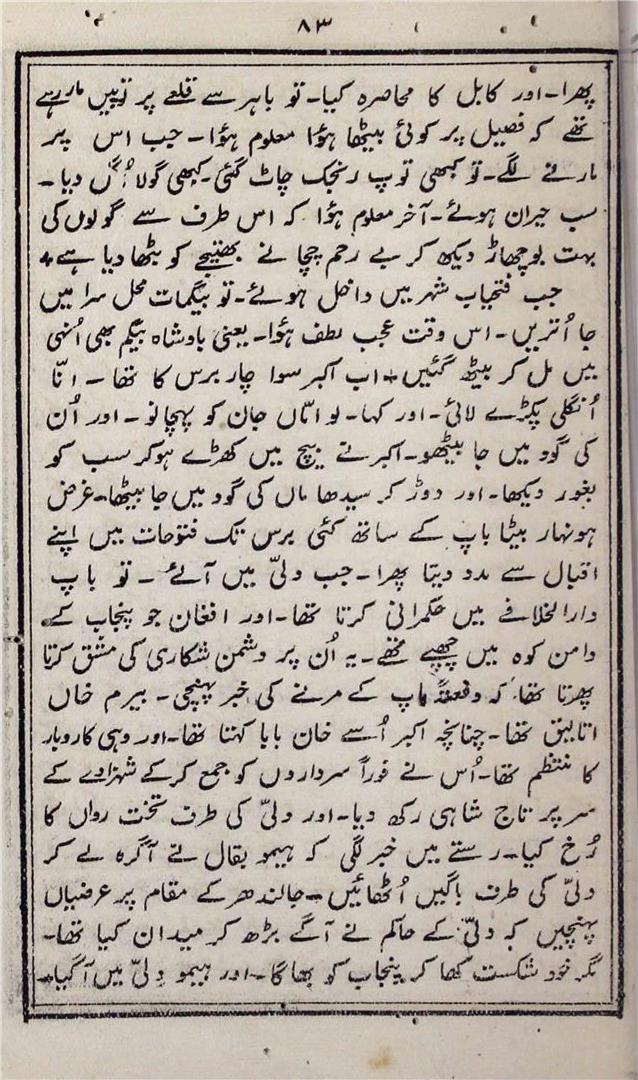 ۸۳
پھرا۔ اور کابل کا محاصرہ کیا۔ تو باہر سے قلعے پر توپیں مار رہے
تھے کہ فصیل پر کوئی بیٹھا ہؤا معلوم ہؤا۔ جب اس پر
مارنے لگے۔ تو کبھی توپ رنجک چاٹ گئی۔ کبھی گولا اُگل دیا۔
سب حیران ہوئے۔ آخر معلوم ہؤا کہ اس طرف سے گولوں کی
بہت بوچھاڑ دیکھ کر بے رحم چچا نے بھتیجے کو بٹھا دیا ہے +
جب فتحیاب شہر میں داخل ہوئے۔ تو بیگمات محل سرا میں
جا اُتریں۔ اس وقت عجب لطف ہؤا۔ یعنی بادشاہ بیگم بھی اُنہی
میں مل کر بیٹھ گئیں + اب اکبر سوا چار برس کا تھا ۔ انّا
اُنگلی پکڑے لائی۔ اور کہا۔ لو امّاں جان کو پہچانو ۔ اور اُن
کی گود میں جا بیٹھو۔ اکبر نے بیچ میں کھڑے ہوکر سب کو
بغور دیکھا۔ اور دوڑ کر سیدھا ماں کی گود میں جا بیٹھا۔ غرض
ہونہار بیٹا باپ کے ساتھ کئی برس تک فتوحات میں اپنے
اقبال سے مدد دیتا پھرا۔ جب دلّی میں آئے ۔ تو باپ
دارالخلافے میں حکمرانی کرتا تھا۔ اور افغان جو پنجاب کے
دامن کوہ میں چھپے تھے۔ یہ اُن پر دشمن شکاری کی مشق کرتا
پھرتا تھا کہ دفعتہً باپ کے مرنے کی خبر پہنچی۔ بیرم خاں
اتالیق تھا۔ چنانچہ اکبر اُسے خان بابا کہتا تھا۔ اور وہی کاروبار
کا منتظم تھا۔ اُس نے فوراً سرداروں کو جمع کرکے شہزادے کے
سر پر تاج شاہی رکھ دیا۔ اور دلّی کی طرف تخت رواں کا
رُخ کیا۔ رستے میں خبر لگی کہ ہیمو بقال نے آگرہ لے کر
دلّی کی طرف باگیں اُٹھائیں۔ جالندھر کے مقام پر عرضیاں
پہنچیں کہ دلّی کے حاکم نے آگے بڑھ کر میدان کیا تھا۔
مگر خود شکست کھا کر پنجاب کو بھاگا۔ اور ہیمو دلّی میں آگیا۔